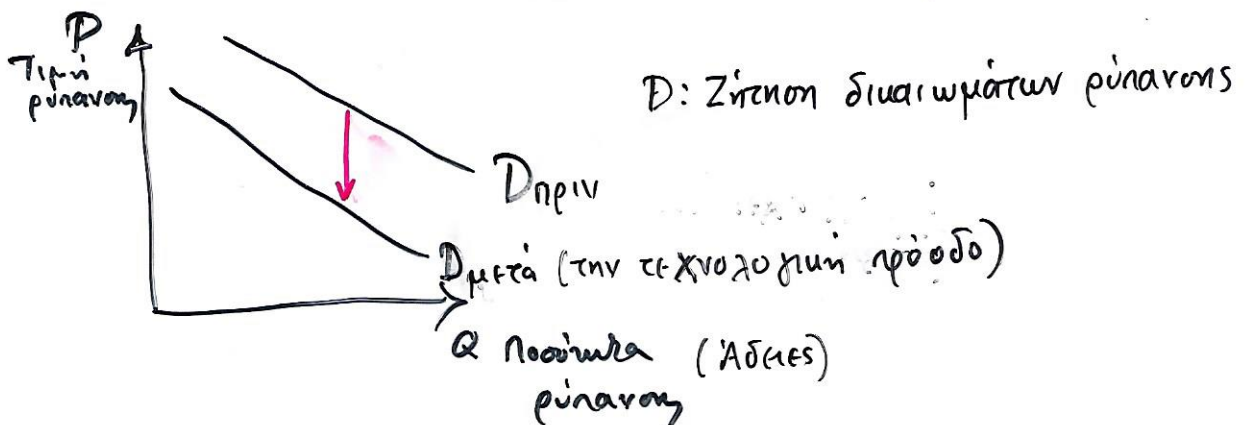 P
Τιμή
ρύπανσης
D: Ζήτηση δικαιωμάτων ρύπανσης
Dπριν
Dμετά (την τεχνολογική πρόοδο)
Q Ποσότητα (Άδειες)
ρύπανσης